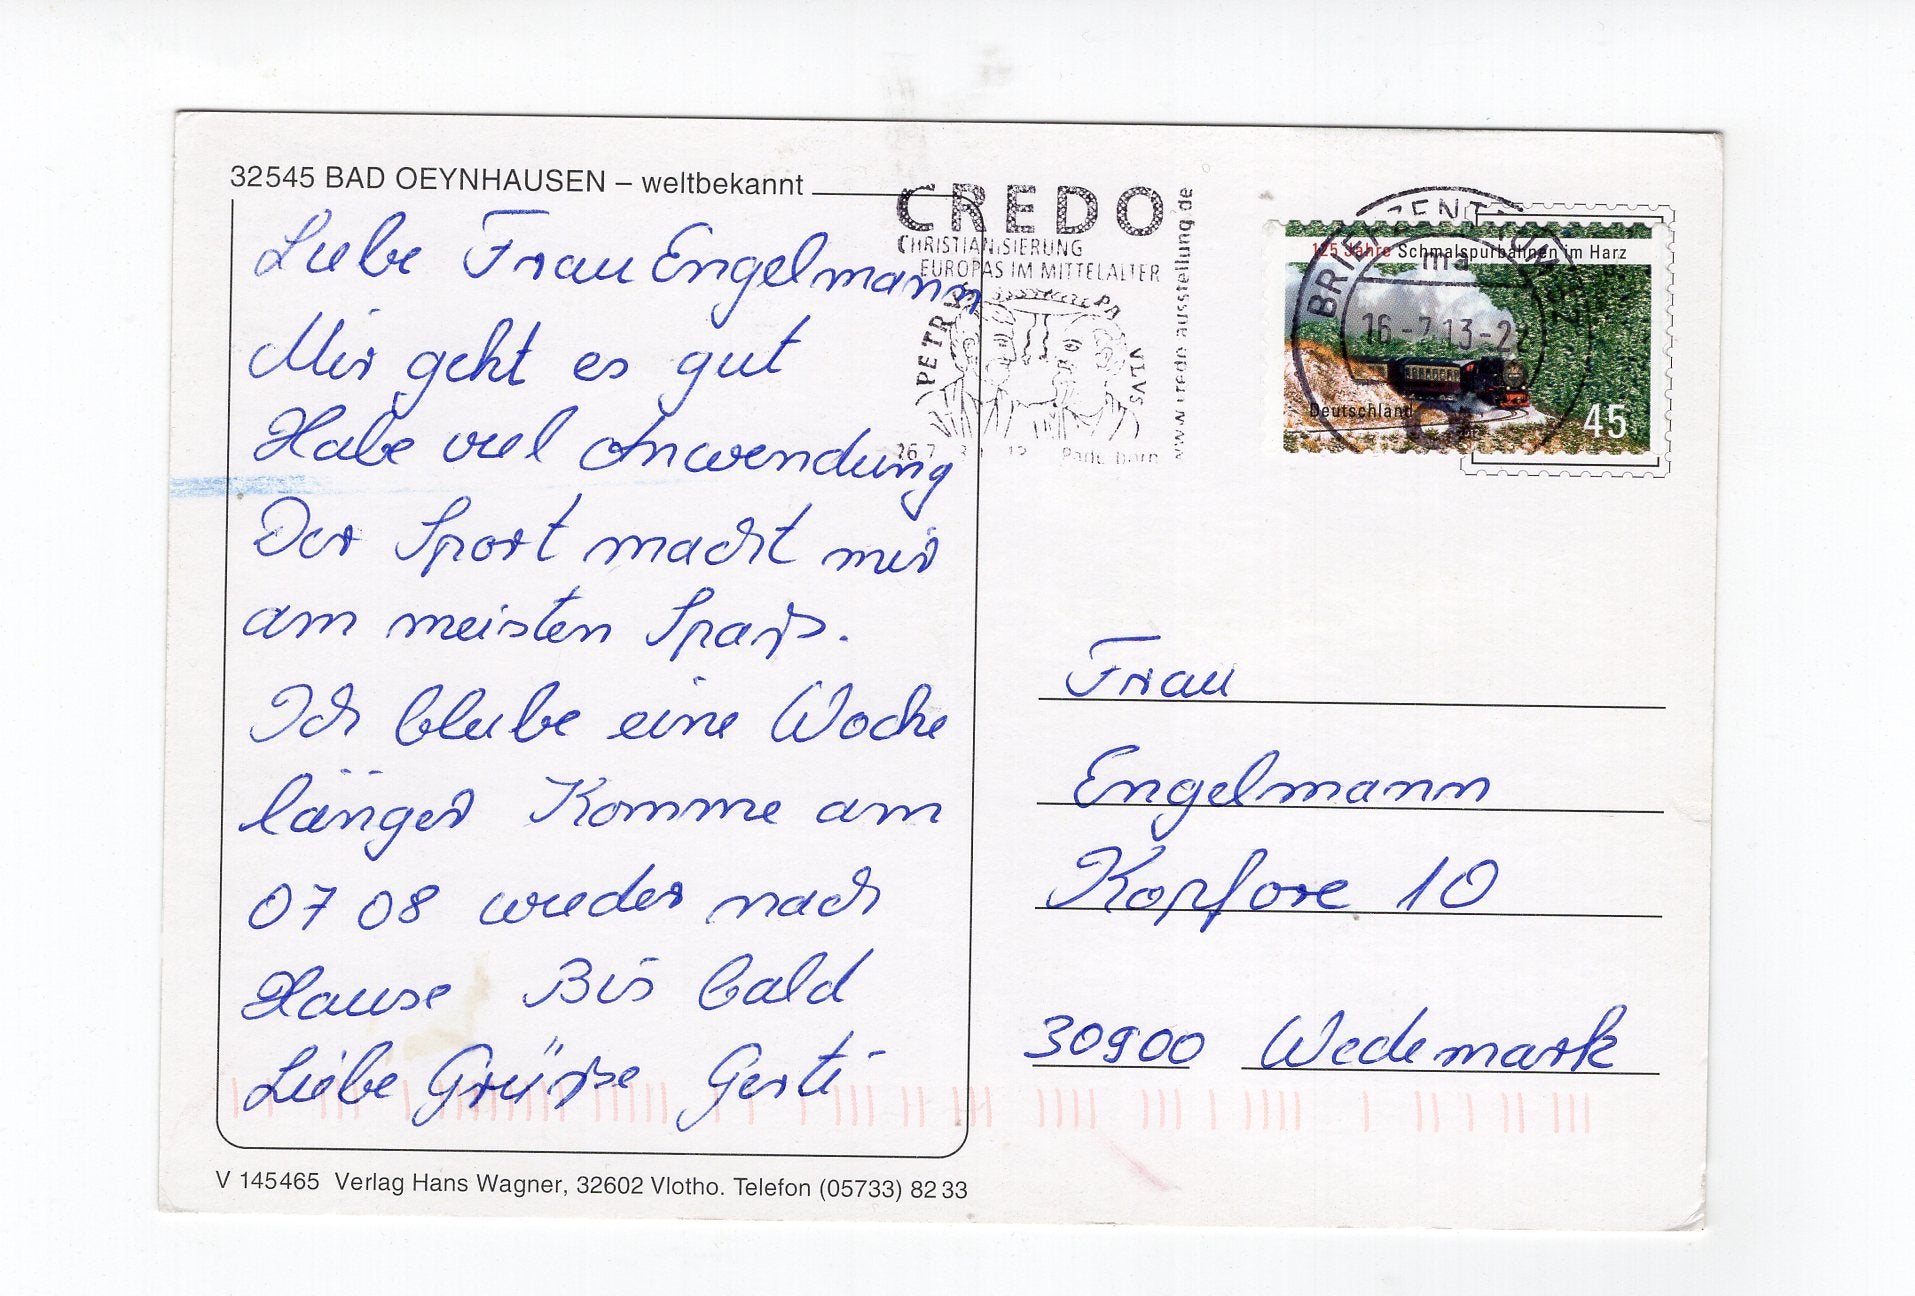 32545 BAD OEYNHAUSEN – weltbekannt
Liebe Frau Engelmann
Mir geht es gut
Habe viel Anwendung
Der Sport macht mir
am meisten Spaß.
Ich bleibe eine Woche
länger Komme am
07 08 wieder nach
Hause Bis bald
Liebe Grüße Gerti
V 145465 Verlag Hans Wagner, 32602 Vlotho. Telefon (05733) 82 33
CREDO
CHRISTIANISIERUNG
EUROPAS IM MITTELALTER
PETRVS PAVLVS
Paderborn
www.credo-ausstellung.de
BRIEFZENTRUM 32
ma
16-7.13-22
125 Jahre Schmalspurbahnen im Harz
Deutschland
45
Frau
Engelmann
Kopfore 10
30900 Wedemark